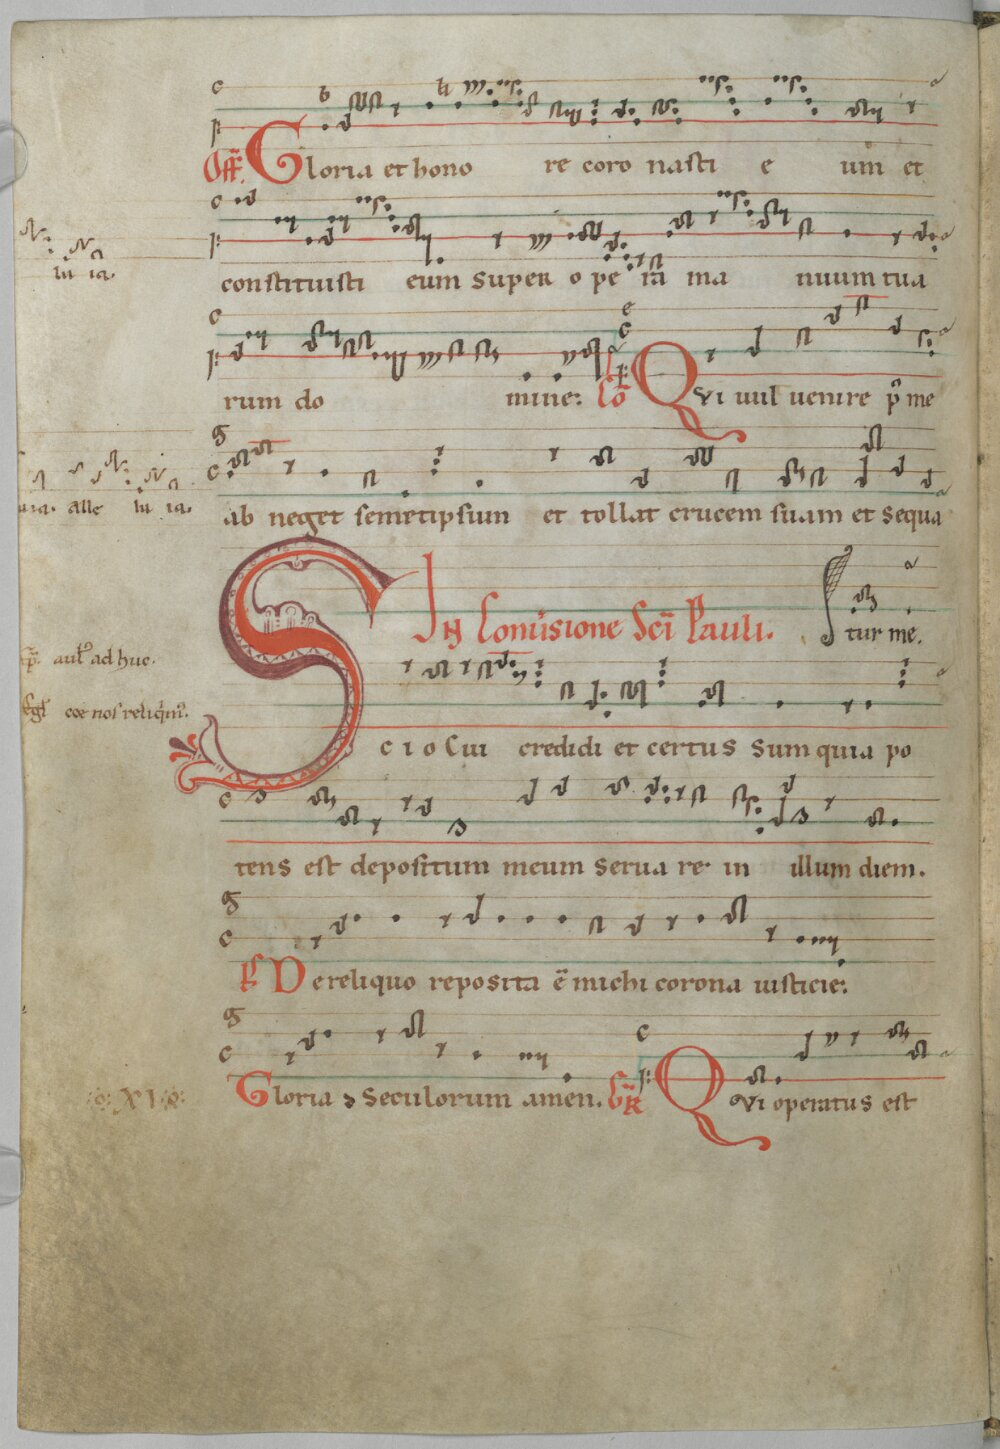 Off. Gloria et hono re coro nasti e um et
constituisti eum super o pe ra ma nuum tua
rum do mine. Co Qui uult uenire p me
ab neget semetipsum et tollat crucem suam et sequa
In Conuersione Sci Pauli. tur me.
Scio Cui credidi et certus sum quia po
tens est depositum meum serua re in illum diem.
Ps De reliquo reposita ē michi corona iusticie.
Gloria Seculorum amen. GR Qui operatus est
lu ia.
uia. alle lu ia.
ad huc.
XI